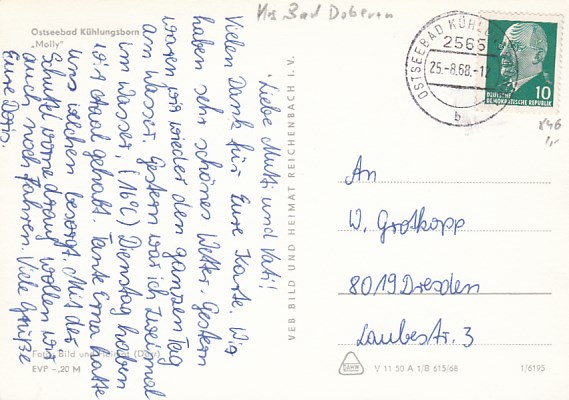 Ostseebad Kühlungsborn
"Molly"
Krs Bad Doberan
Liebe Mutti und Vati!
Vielen Dank für Eure Karte. Wir
haben sehr schönes Wetter. Gestern
waren wir wieder den ganzen Tag
am Wasser. Gestern war ich zweimal
im Wasser, (16°C) Dienstag haben
wir Aal gehabt. Tante Erna hatte
uns welchen besorgt. Mit der
Schullel vorne drauf wollen wir
auch noch fahren. Viele Grüße
Eure Doris.
Foto: Bild und Heimat
EVP –,20 M
VEB BILD UND HEIMAT REICHENBACH I. V.
OSTSEEBAD KÜHLUNGSBORN
2565
25.-8.68.-12
b
10
DEUTSCHE
DEMOKRATISCHE REPUBLIK
846
1,-
An
W. Grotkopp
8019 Dresden
Laubestr. 3
V 11 50 A 1/B 615/68
1/6195